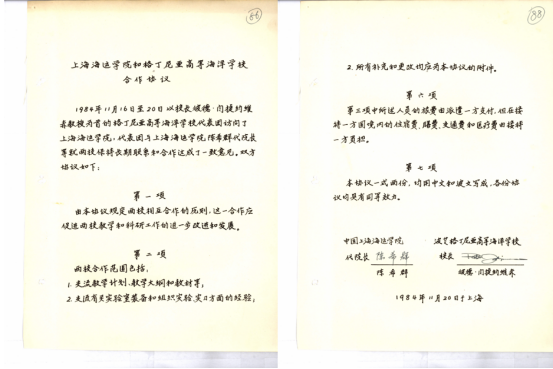 86
上海海运学院和格丁尼亚高等海洋学校
合作协议
1984年11月16日至20日以校长彼德·闩捷约维
奇教授为首的格丁尼亚高等海洋学校代表团访问了
上海海运学院，代表团与上海海运学院陈希群代院长
等就两校保持长期联系和合作达成了一致意见。双方
协议如下：
第一项
由本协议规定两校相互合作的原则，这一合作应
促进两校教学和科研工作的进一步改进和发展。
第二项
两校合作范围包括，
1. 交流教学计划、教学大纲和教材等；
2. 交流有关实验室装备和组织实验、实习方面的经验；
88
2. 所有补充和更改均应为本协议的附件。
第六项
第三项中所述人员的旅费由派遣一方支付，但在接
待一方国境内的住宿费、膳费、交通费和医疗费由接待
一方负担。
第七项
本协议一式两份，均用中文和波文写成，各份协
议均具有同等效力。
中国上海海运学院 波兰格丁尼亚高等海洋学校
代院长 陈希群 校长
陈希群 彼德·闩捷约维奇
1984年11月20日于上海